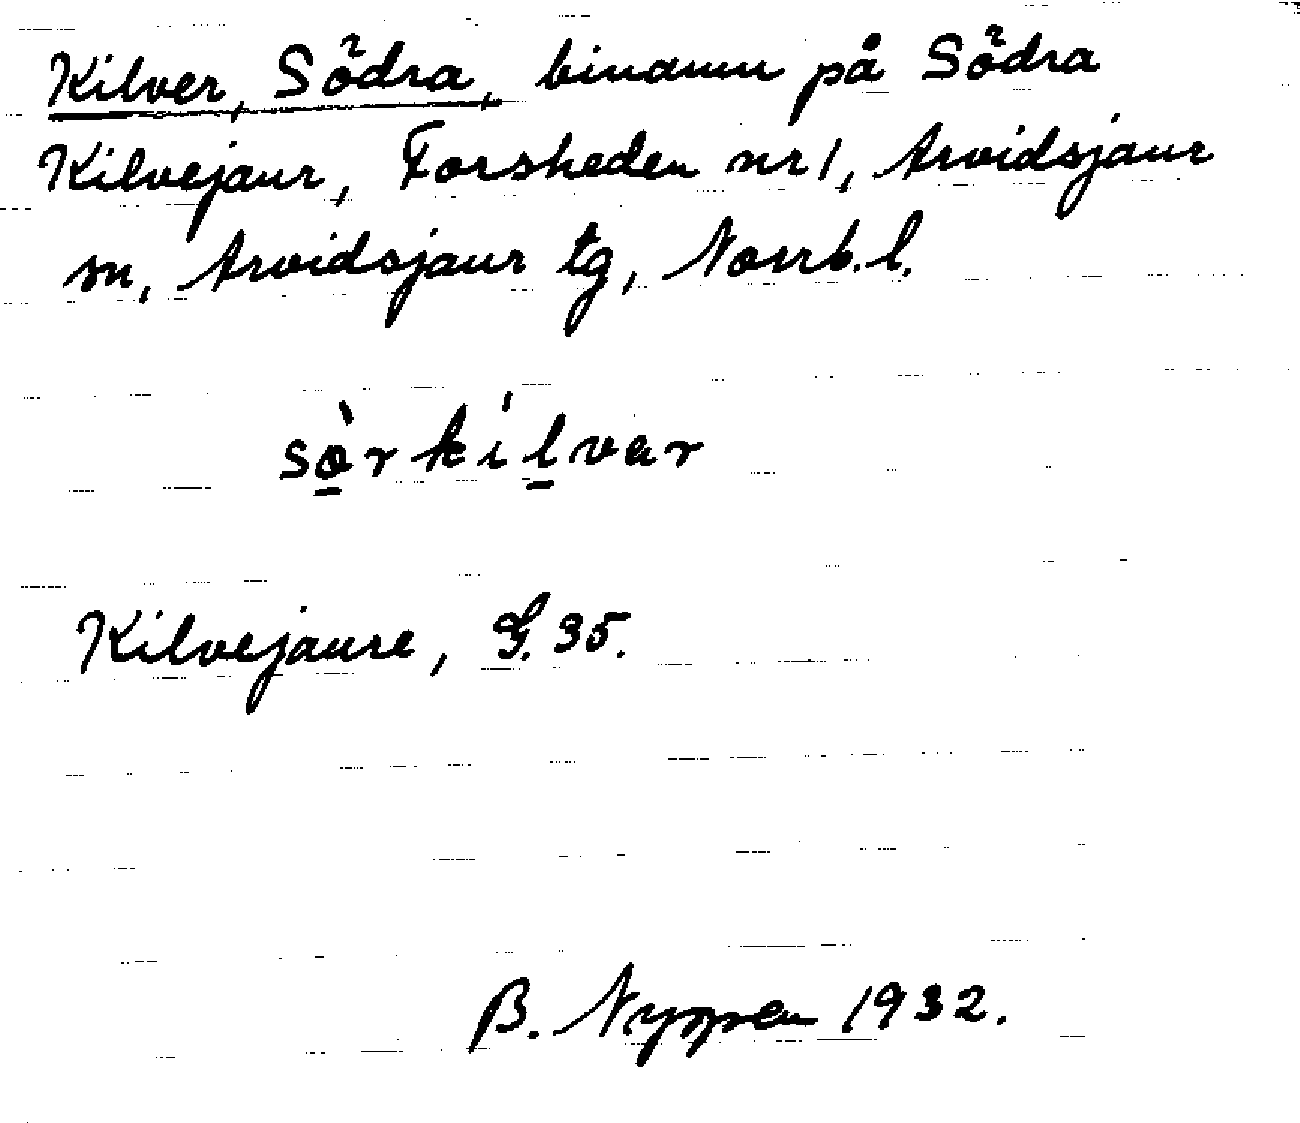 Kilver, Södra, binamn på Södra
Kilvejaur, Forsheden nr 1, Arvidsjaur
sn, Arvidsjaur tg, Norrb. l.
sö̀rkílvar
Kilvejaure, G. 35.
B. Nyppen 1932.